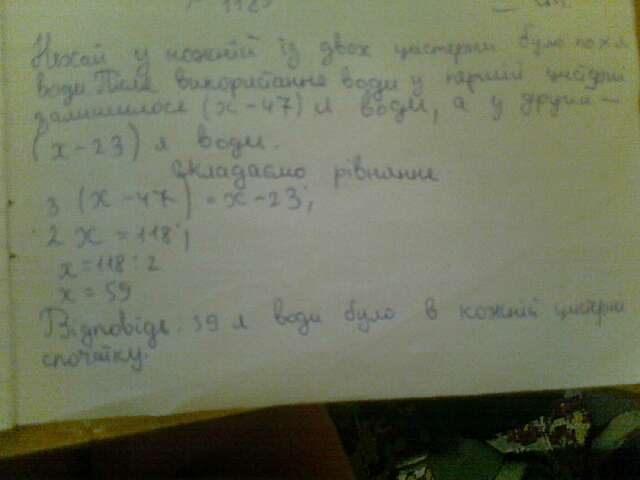 1182
Нехай у кожній із двох цистерн було по х л
води. Після використання води у першій цистерні
залишилося (х-47) л води, а у другій -
(х-23) л води.
Складаємо рівняння
3 (х-47) = х-23;
2 х = 118;
х = 118 : 2
х = 59
Відповідь. 59 л води було в кожній цистерні
спочатку.